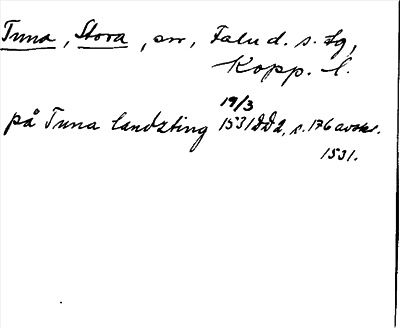 Tuna, Stora, sn, Falu d. s. tg,
Kopp. l.
19/3
på Tuna landzting 1531 DD2, s. 176 avskr.
1531.